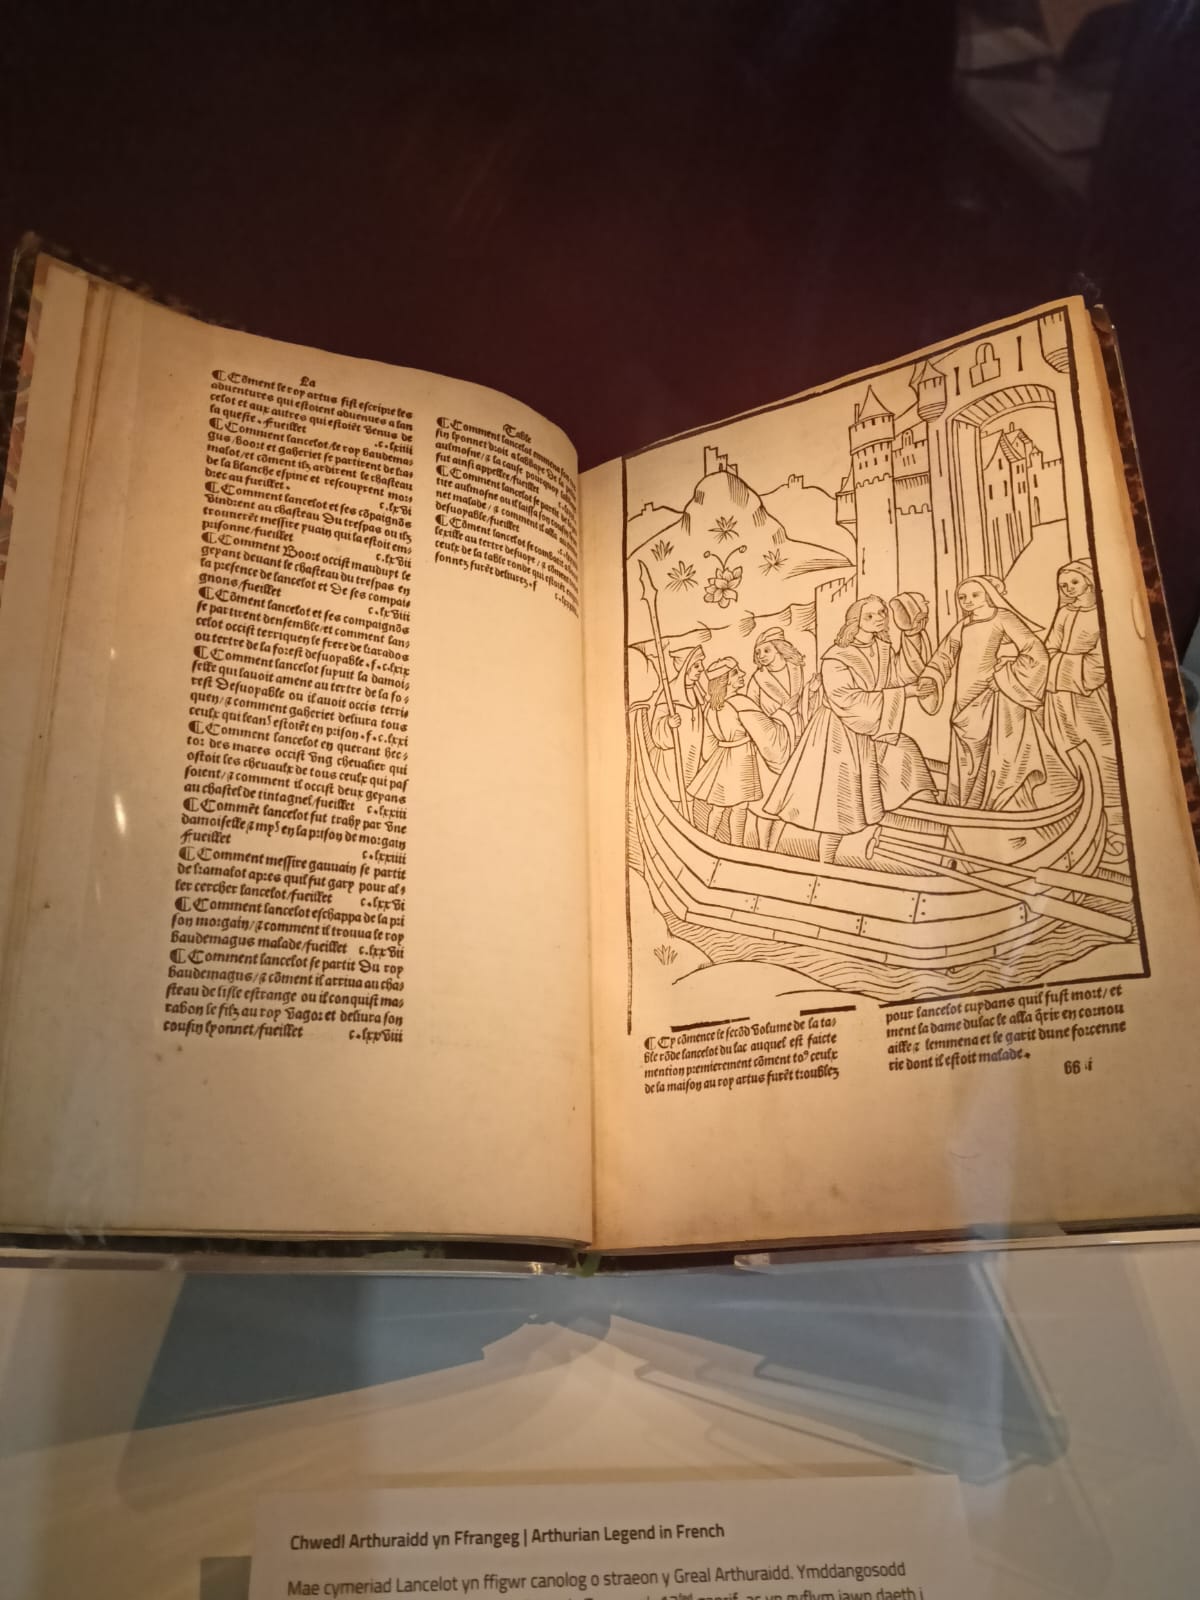 La
¶ Cõment le roy artus fist escripre les
aduentures qui estoient aduenues a lan
celot et aux autres qui estoiẽt venus de
la queste. fueillet c.lxiiii
¶ Comment lancelot/le roy baudema
gus/boort et gaheriet se partirent de ka
malot/et cõment ilz ardirent le chasteau
de la blanche espine et rescouyrent mor
drec au fueillet. c.lxvi
¶ Comment lancelot et ses cõpaignõs
vindrent au chasteau du trespas ou ilz
trouuerẽt messire yuain qui la estoit em
prisonne/fueillet c.lxvii
¶ Comment Boort occist mauduyt le
geyant deuant le chasteau du trespas en
la presence de lancelot et de ses compai
gnons/fueillet c.lxviii
¶ Cõment lancelot et ses compaignõs
se partirent densemble/et comment lan
celot occist terriquen le frere de karados
ou tertre de la forest desuoyable.f.c.lxix
¶ Comment lancelot suyuit la damoi
selle qui lauoit amene au tertre de la fo
rest desuoyable ou il auoit occis terri
quen/⁊ comment gaheriet deliura tous
ceulx qui leans estoiẽt en prison.f.c.lxxi
¶ Comment lancelot en querant hec
tor des mares occist vng cheualier qui
ostoit les cheuaulx de tous ceulx qui pas
soient/⁊ comment il occist deux geyans
au chastel de tintagnel/fueillet c.lxxiii
¶ Commẽt lancelot fut trahy par vne
damoiselle ⁊ mys en la prison de morgain
fueillet c.lxxiiii
¶ Comment messire gauuain se partit
de kramalot apres quil fut gary pour al
ler cercher lancelot/fueillet c.lxxvi
¶ Comment lancelot eschappa de la pri
son morgain/⁊ comment il trouua le roy
baudemagus malade/fueillet c.lxxvii
¶ Comment lancelot se partit du roy
baudemagus/⁊ cõment il arriua au cha
steau de lisle estrange ou il conquist ma
rabon le filz au roy vagor et deliura son
cousin lyonnet/fueillet c.lxxviii
Table
¶ Comment lancelot emmena son
sin lyonnet droit a labbaye de la
aulmosne/⁊ la cause pourquoy
fut ainsi appellee/fueillet
¶ Comment lancelot se partit de
tite aulmosne ou il laissa son cousin
net malade/⁊ comment il alla au
desuoyable/fueillet
¶ Cõment lancelot se combatit a
lexille au tertre desuoye/⁊ cõment
ceulx de la table ronde qui estoiẽt
sonnez furẽt deliurez.f
¶ Cy cõmence le secõd volume de la ta
ble rõde lancelot du lac auquel est faicte
mention premierement cõment to⁹ ceulx
de la maison au roy artus furẽt troublez
pour lancelot cuydans quil fust mort/et
ment la dame du lac le alla q̃rir en cornou
aille ⁊ lemmena et le garit dune forcenne
rie dont il estoit malade.
66 i
Chwedl Arthuraidd yn Ffrangeg | Arthurian Legend in French
Mae cymeriad Lancelot yn ffigwr canolog o straeon y Greal Arthuraidd. Ymddangosodd